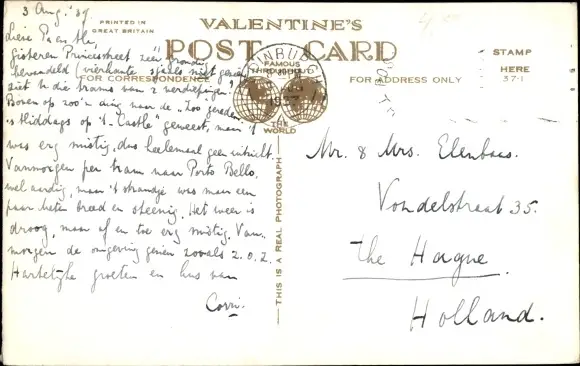 3 Aug. '37
PRINTED IN
GREAT BRITAIN
VALENTINE'S
POST CARD
FAMOUS
THROUGHOUT
THE
WORLD
FOR CORRESPONDENCE
FOR ADDRESS ONLY
STAMP
HERE
37-1
EDINBURGH
1937
THIS IS A REAL PHOTOGRAPH
Lieve Pa en Ma,
Gisteren Princesstreet zeer grondig
bewandeld (vierkante
ziet u die trams van 2 verdiepingen.
Boven op zoo'n ding naar de "Zoo" gereden.
's Middags op 't Castle geweest, maar 't
was erg mistig, dus heelemaal geen uitzicht.
Vanmorgen per tram naar Porto Bello,
wel aardig, maar 't strandje was maar een
paar meter breed en steenig. Het weer is
droog, maar af en toe erg mistig. Van-
morgen de omgeving gezien zooals z.o.z.
Hartelijke groeten en kus van
Corri.
Mr. & Mrs. Elenbaas.
Vondelstraat 35.
The Hague.
Holland.